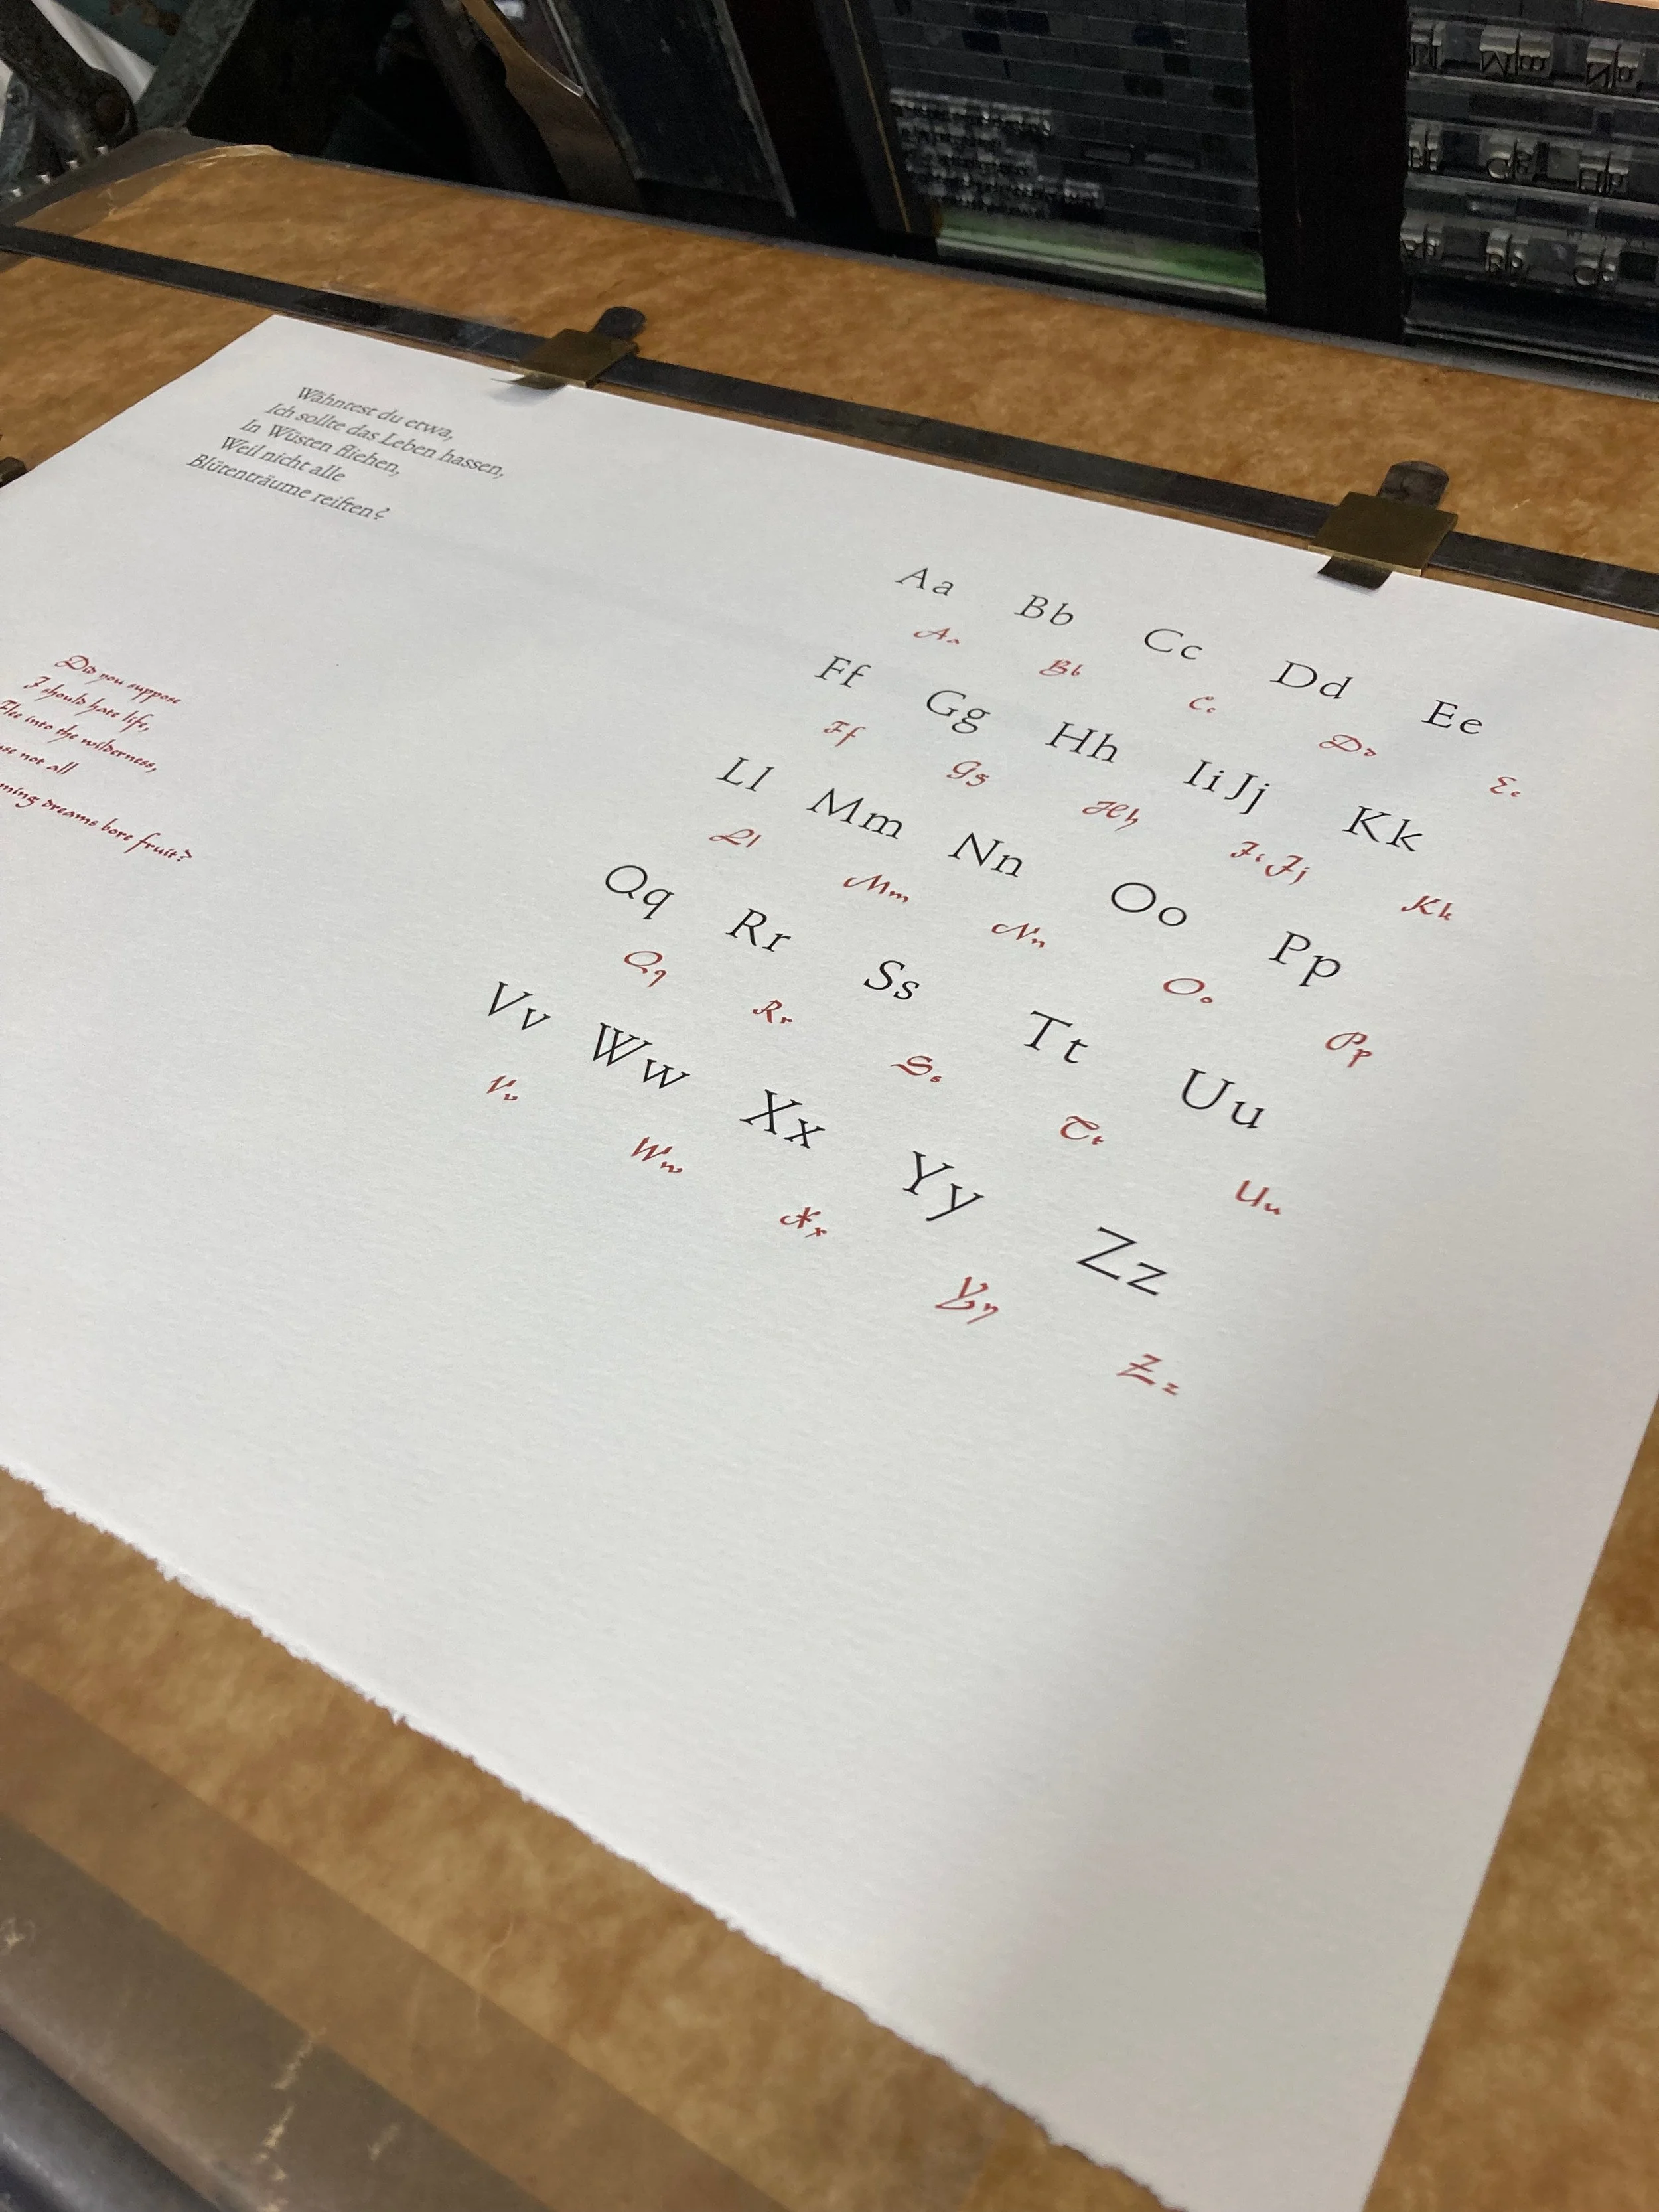 Wähntest du etwa,
Ich sollte das Leben hassen,
In Wüsten fliehen,
Weil nicht alle
Blütenträume reiften?
Did you suppose
I should hate life,
Flee into the wilderness,
not all
dreams bore fruit?
Aa Bb Cc Dd Ee
Aa Bb Cc Dd Ee
Ff Gg Hh Ii Jj Kk
Ff Gg Hh Ii Jj Kk
Ll Mm Nn Oo Pp
Ll Mm Nn Oo Pp
Qq Rr Ss Tt Uu
Qq Rr Ss Tt Uu
Vv Ww Xx Yy Zz
Vv Ww Xx Yy Zz